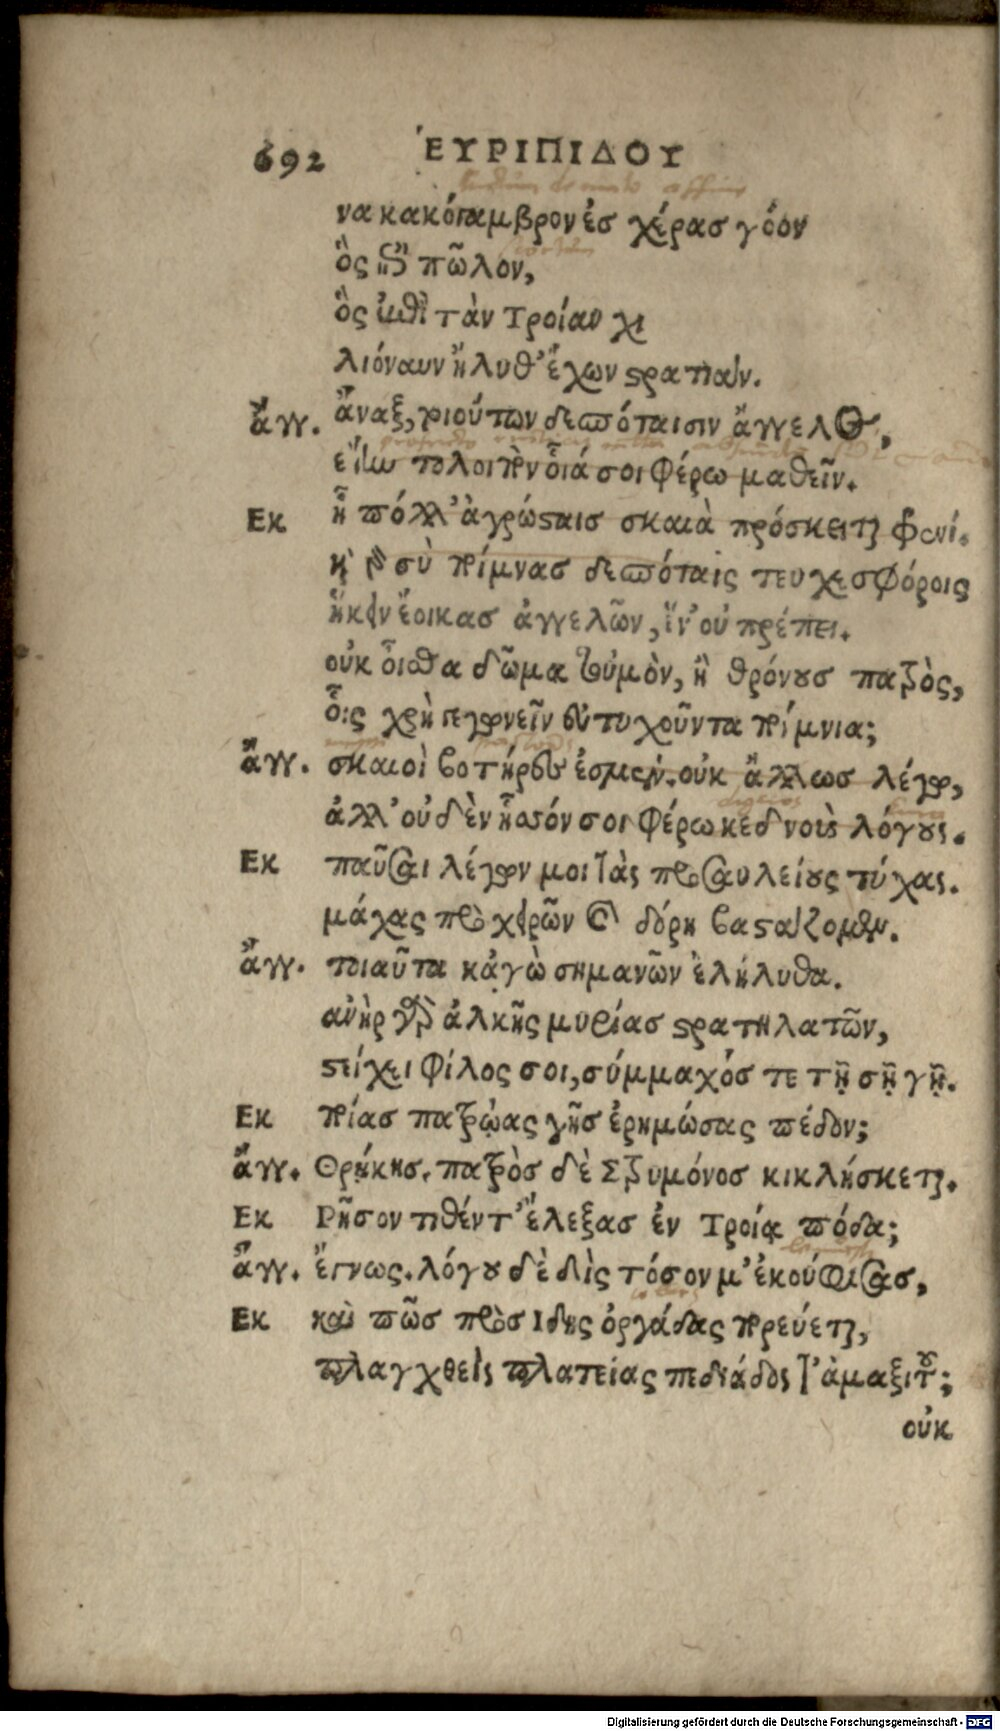 692 ἘΥΡΙΠΙΔΟΥ
να κακόγαμβρον ἐσ χέρασ γόον
ὃς ἐπὶ πῶλον,
ὃς ἐπὶ τὰν Τροίαν χι
λιόναυν ἤλυθ' ἔχων στρατιάν.
ἄγγ. ἄναξ, τοιούτων δεσπόταισιν ἄγγελος,
εἴην τολοιπὸν οἷά σοι φέρω μαθεῖν.
Εκ ἦ πόλλ' ἀγρώσταισ σκαιὰ πρόσκειται φρενί.
καὶ γὰρ σὺ ποίμνασ δεσπόταις τευχεσφόροις
ἥκειν ἔοικασ ἀγγελῶν, ἵν' οὐ πρέπει.
οὐκ οἶσθα δῶμα τοὐμὸν, ἢ θρόνουσ πατρὸς,
οἷς χρὴ γεγωνεῖν εὐτυχοῦντα ποίμνια;
ἄγγ. σκαιοὶ βοτῆρές ἐσμεν. οὐκ ἄλλωσ λέγω,
ἀλλ' οὐδὲν ἧσσόν σοι φέρω κεδνοὺς λόγους.
Εκ παῦσαι λέγων μοι τὰς προσαυλείους τύχας.
μάχας πρὸ χειρῶν καὶ δόρη βαστάζομεν.
ἄγγ. τοιαῦτα κἀγὼ σημανῶν ἐλήλυθα.
ἀνὴρ γὰρ ἀλκῆς μυρίασ στρατηλατῶν,
στείχει φίλος σοι, σύμμαχόσ τε τῇ σῇ γῇ.
Εκ ποίασ πατρῴας γῆσ ἐρημώσας πέδον;
ἄγγ. Θρῄκησ. πατρὸσ δὲ Στρυμόνοσ κικλήσκεται.
Εκ Ρῆσον τιθέντ' ἔλεξασ ἐν Τροίᾳ πόδα;
ἄγγ. ἔγνως. λόγου δὲ δὶς τόσον μ' ἐκούφισασ,
Εκ καὶ πῶσ πρὸσ Ιδης ὀργάδας πορεύεται,
πλαγχθεὶς πλατείας πεδιάδος τ' ἁμαξιτοῦ;
οὐκ
Digitalisierung gefördert durch die Deutsche Forschungsgemeinschaft - DFG